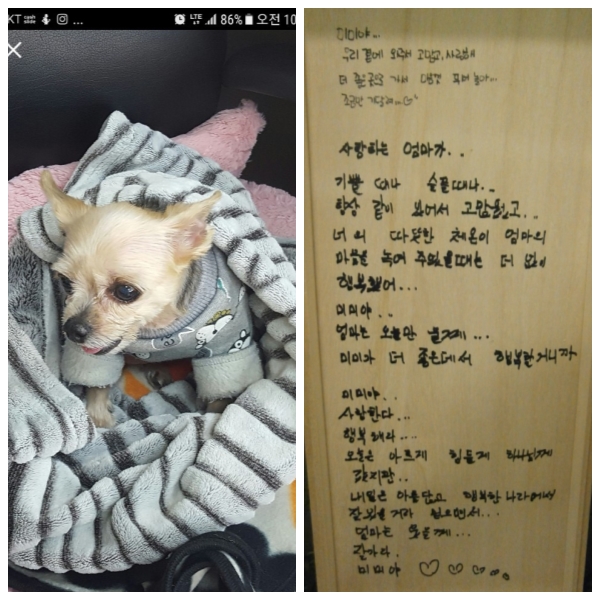 KT ... LTE 86% 오전 10
미미야...
우리 곁에 와줘서 고맙고, 사랑해
더 좋은곳으로 가서 맘껏 뛰어 놀아...
조금만 기다려...♡
사랑하는 엄마가...
기쁠 때나 슬플때나...
항상 같이 있어서 고마웠고...
너의 따뜻한 체온이 엄마의
마음을 녹여 주었을때는 더 없이
행복했어...
미미야...
엄마는 오늘만 울께...
미미가 더 좋은데서 행복할거니까
미미야...
사랑한다...
행복해라...
오늘은 아프게 힘들게 떠나는게
같지만...
내일은 아름답고 행복한 나라에서
잘있을거라 믿으면서...
엄마는 웃을께...
잘가라.
미미야 ♡♡♡